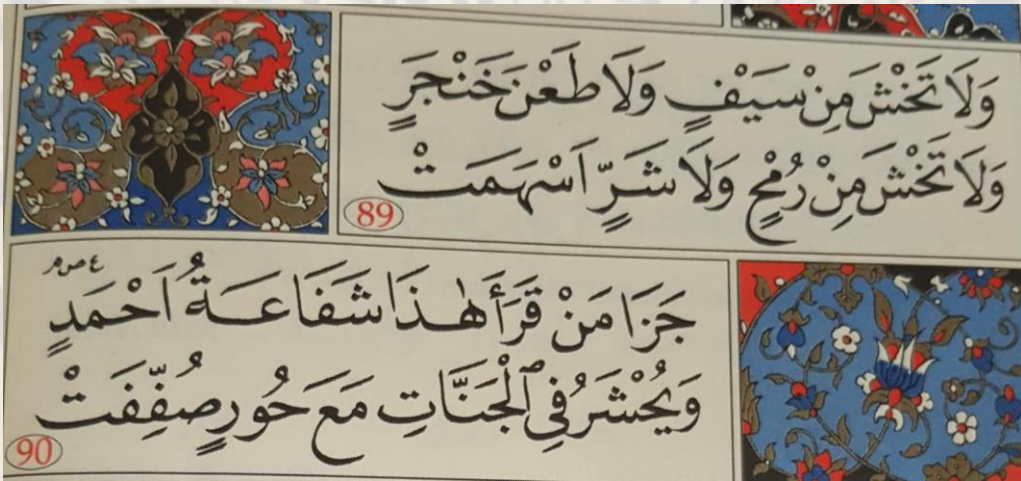 وَلَا تَخْشَ مِنْ سَيْفٍ وَلَا طَعْنَ خَنْجَرٍ
وَلَا تَخْشَ مِنْ رُمْحٍ وَلَا شَرٍّ اَسْهَمَتْ
89
جَزَا مَنْ قَرَأَ هٰذَا شَفَاعَةُ اَحْمَدٍ
وَيُحْشَرُ فِي ٱلْجَنَّاتِ مَعَ حُورٍ صُفِّفَتْ
90